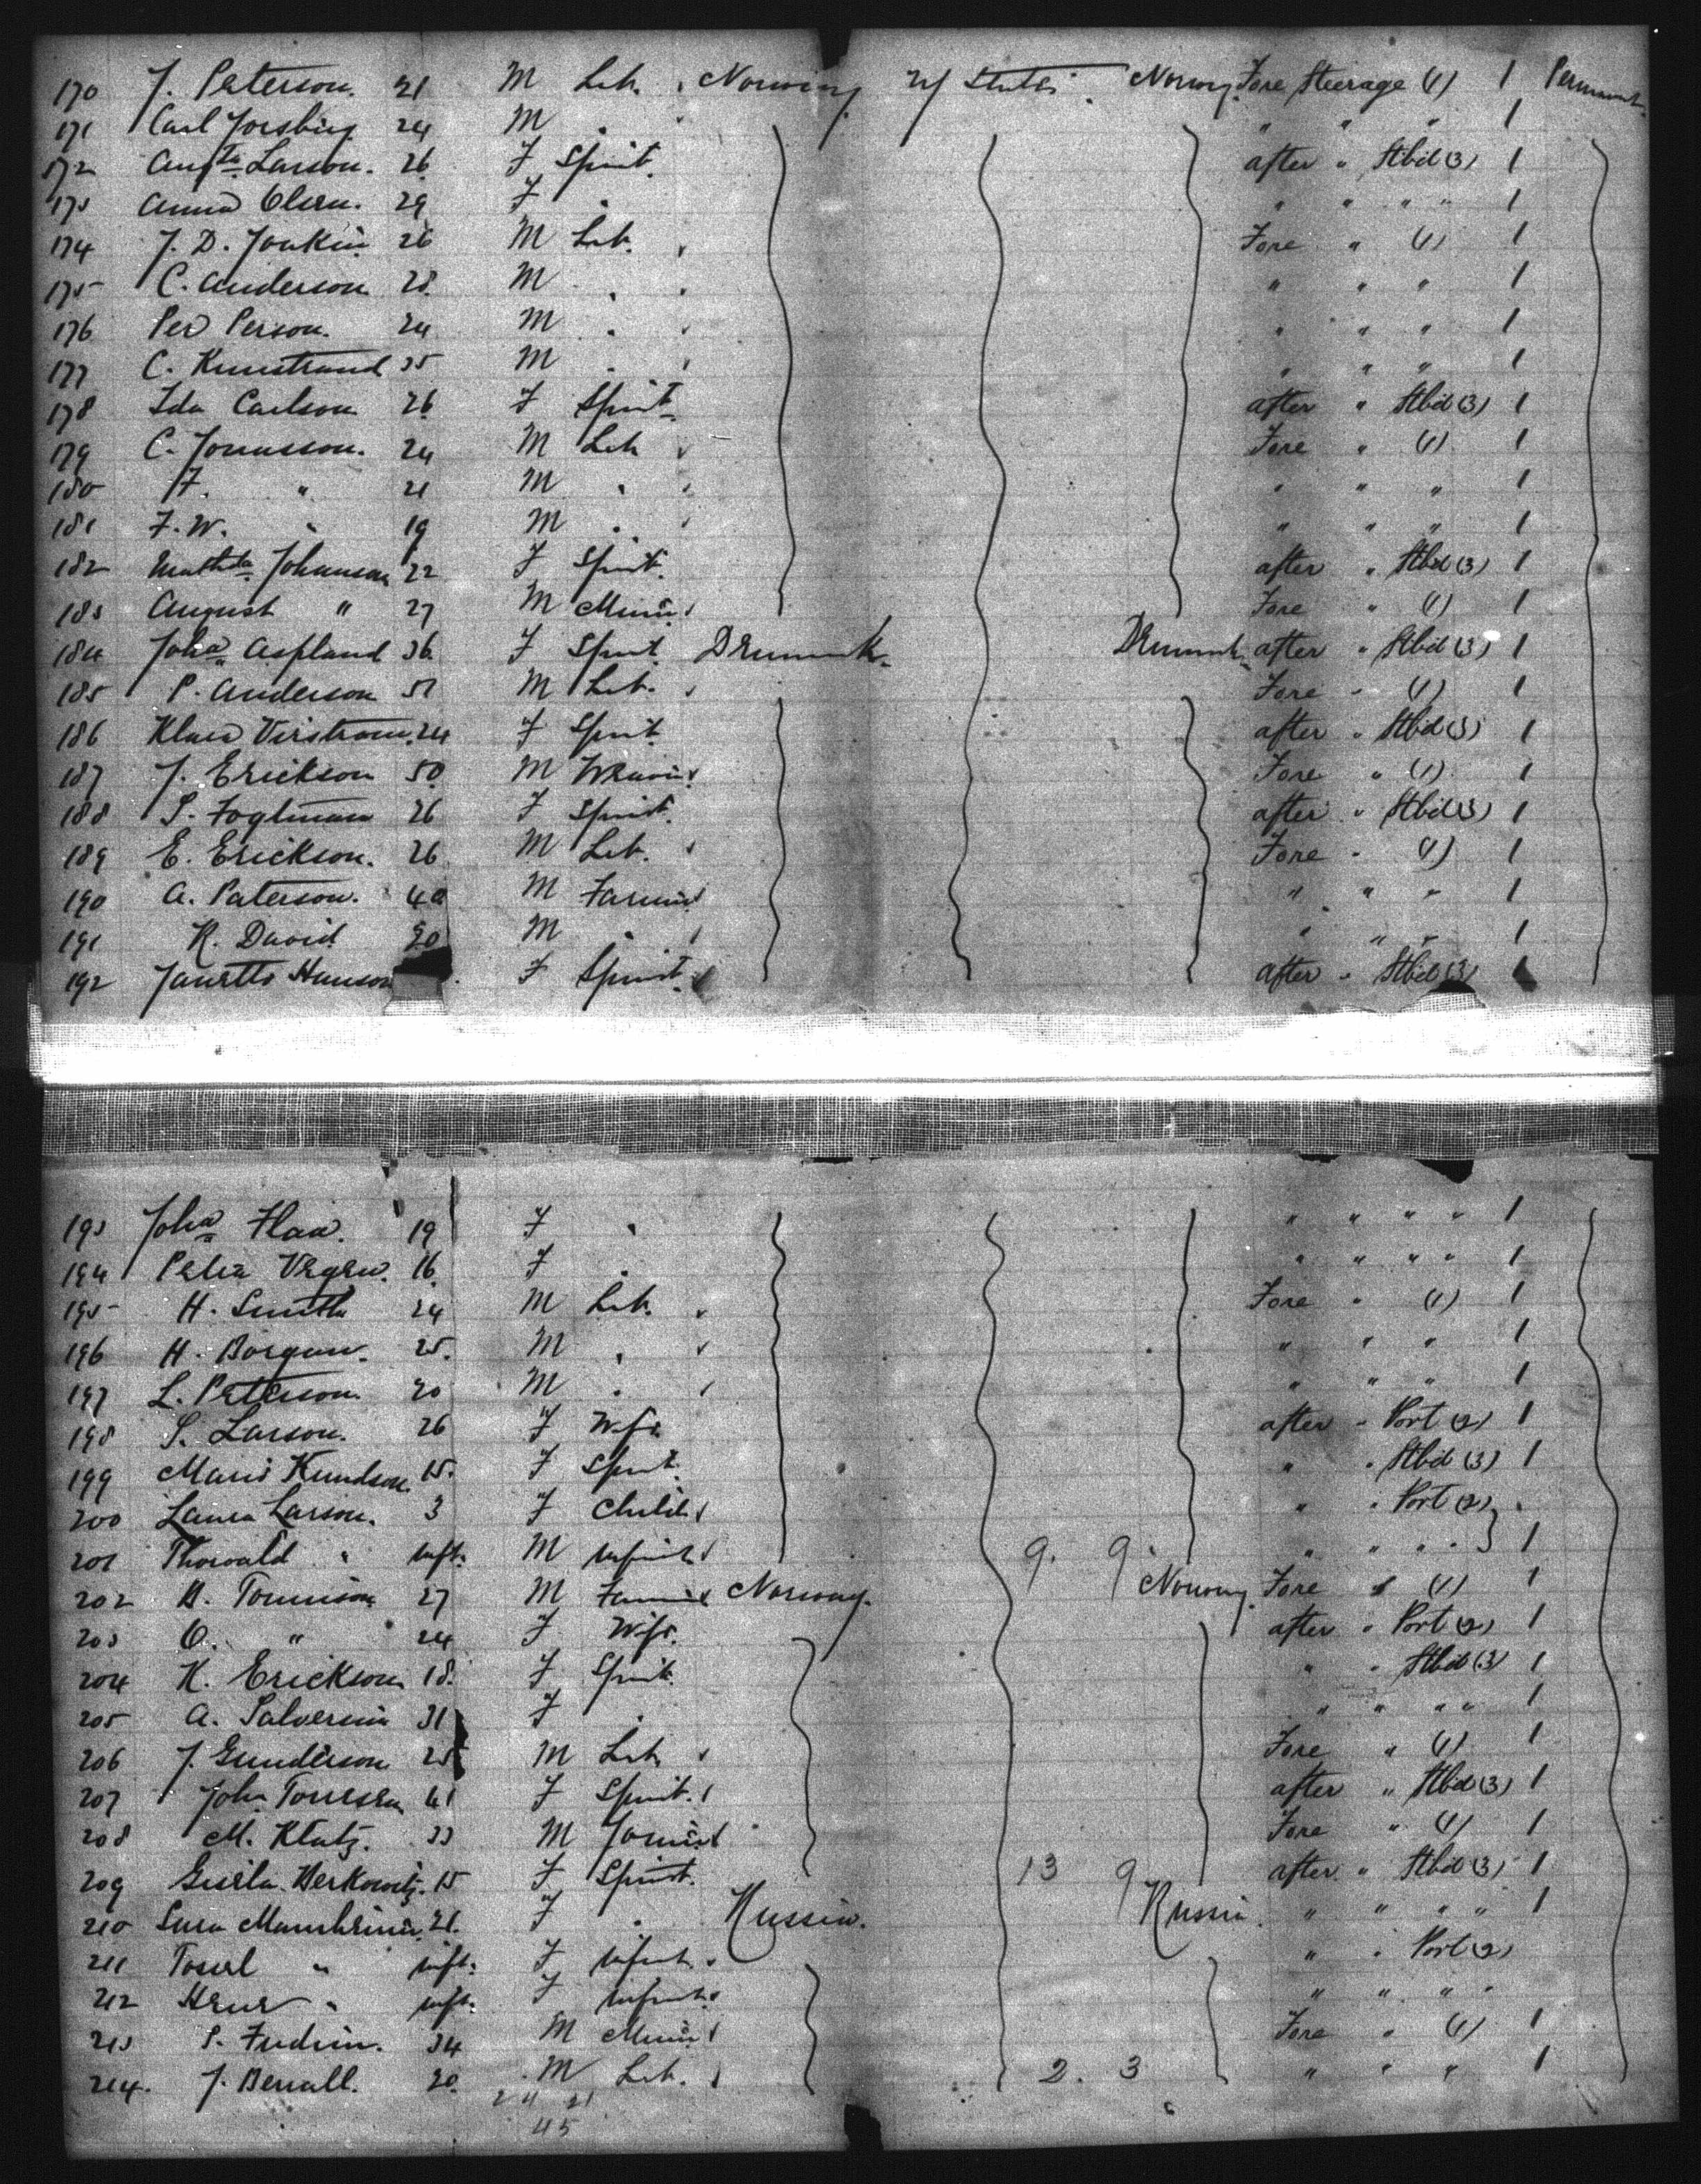 170 J. Peterson. 21 M Lab. Norway U/ States. Norway. Fore Steerage (1) 1
171 Carl Forsberg 24 M . " " " 1
172 Aug.ta Larson. 26 F Spinst. after " Stbd (3) 1
173 Anna Olsen. 29 F . " " " " 1
174 J. D. 26 M Lab. Fore " (1) 1
175 C. Anderson 28. M . " " " 1
176 Per Person. 24 M . " " " 1
177 C. 35 M . " " " 1
178 Ida Carlson 26 F Spinst. after " Stbd (3) 1
179 C. Jonasson. 24 M Lab Fore " (1) 1
180 F. " 21 M . " " " 1
181 F. W. " 19 M . " " " 1
182 Mathda Johanson 22 F Spinst. after " Stbd (3) 1
183 August " 27 M Miner Fore " (1) 1
184 Joha Aspland 36 F Spinst. Denmark. Denmark after " Stbd (3) 1
185 P. Anderson 51 M Lab. Fore " (1) 1
186 24 F Spinst after " Stbd (3) 1
187 J. Erickson 50 M Weaver Fore " (1) 1
188 S. 26 F Spinst. after " Stbd (3) 1
189 E. Erickson. 26 M Lab. Fore " (1) 1
190 A. Paterson. 40 M Farmer " " " 1
191 K. David M . " " " 1
192 Hanson F Spinst. after " Stbd (3)
193 Joha 19 F . " " " " 1
194 16. F . " " " " 1
195 H. Smith 24 M Lab. Fore " (1) 1
196 H. 25. M . " " " 1
197 L. Petterson. 20 M . " " " 1
198 S. Larson. 26 F Wife. after " Port (2) 1
199 Knudson 15. F Spinst. " " Stbd (3) 1
200 Laura Larson. 3 F Child " " Port (2)
201 Thorwald " inft. M infant 9. 9. " " " " 1
202 27 M Farmer Norway. Norway. Fore " (1) 1
203 O. " 24 F Wife. after " Port (2) 1
204 K. Erickson 18. F Spinst. " " Stbd (3) 1
205 A. 31 F . " " " " 1
206 J. Gunderson 25 M Lab Fore " (1) 1
207 F Spinst. after " Stbd (3) 1
208 M. Klatz. 33 M Joiner Fore " (1) 1
209 15 F Spinst. 13 9 after " Stbd (3) 1
210 21. F . Russia. Russia. " " " " 1
211 " inft. F infant. " " Port (2)
212 " inft. F infant " " " "
213 S. 34 M Miner Fore " (1) 1
214. J. 20. M Lab. 2. 3 " " " 1
24 21
45